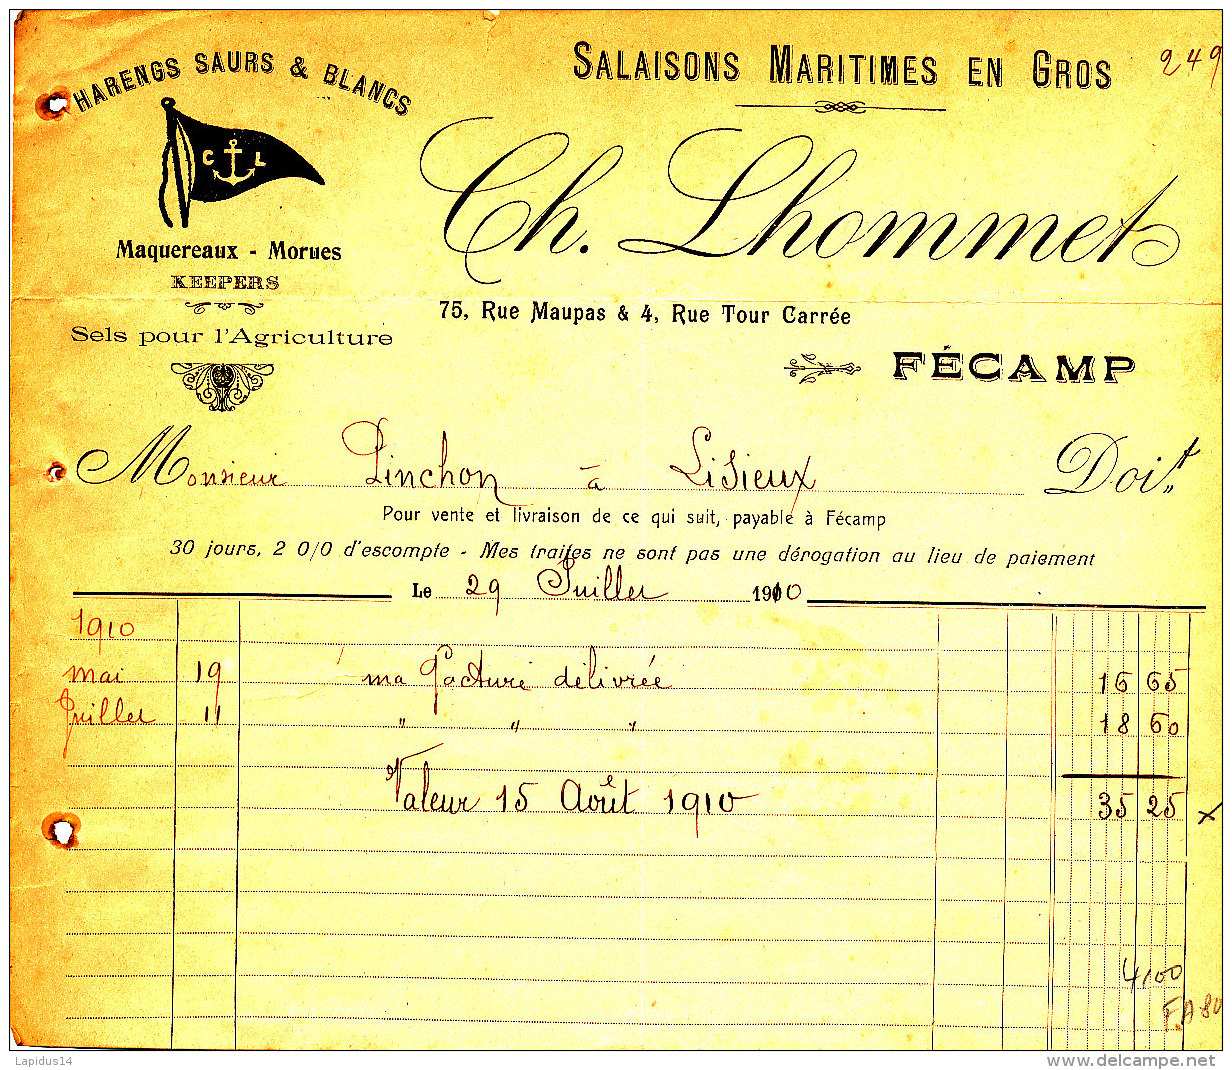 HARENGS SAURS & BLANCS
C L
Maquereaux - Morues
KEEPERS
Sels pour l'Agriculture
SALAISONS MARITIMES EN GROS
249
Ch. Lhommet
75, Rue Maupas & 4, Rue Tour Carrée
FÉCAMP
Monsieur Pinchon à Lisieux Doit
Pour vente et livraison de ce qui suit, payable à Fécamp
30 jours, 2 0/0 d'escompte - Mes traites ne sont pas une dérogation au lieu de paiement
Le 29 Juillet 1910
1910
mai 19 ma facture délivrée 16 65
Juillet 11 " " " 18 60
Valeur 15 Août 1910 35 25 x
4/00
F.A 80
Lapidus14
www.delcampe.net